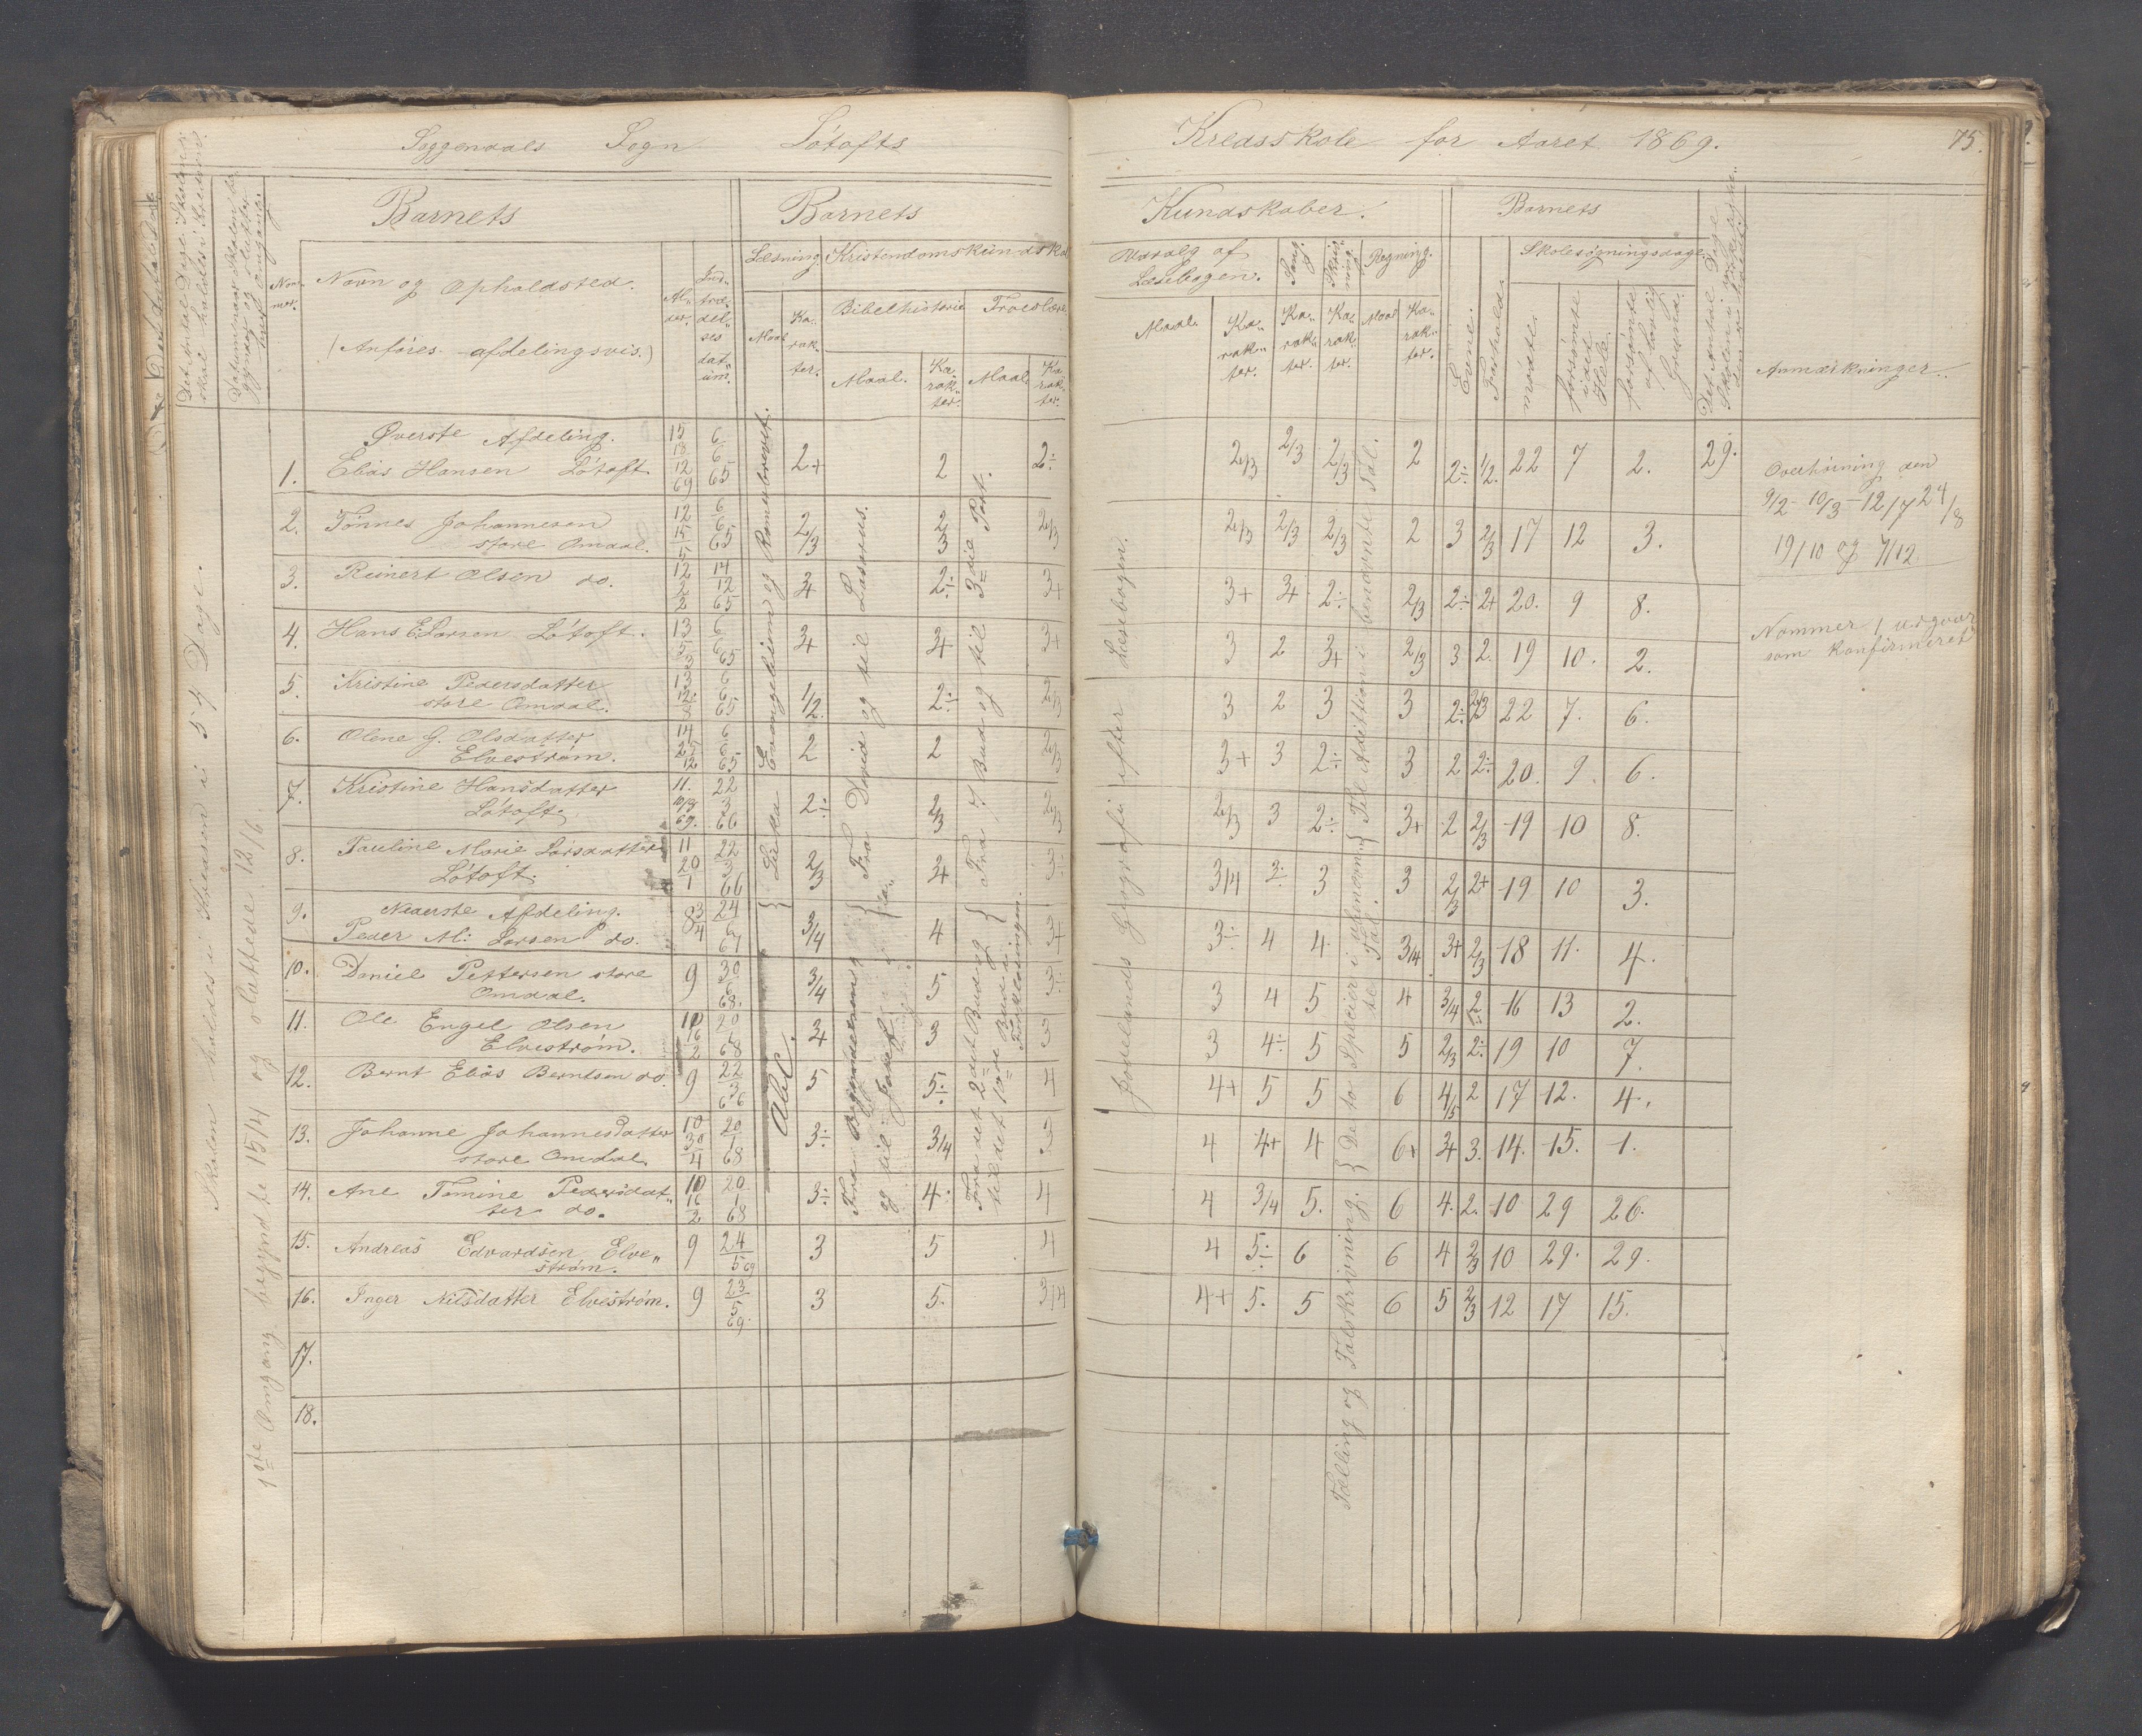 Soggendals Sogn Lötofts Kredsskole for Aaret 1869. 75.
Det Antal Dage Skolen skal holdes i Kredsen.
Datummer Skolen begyndte og sluttede hver Omgang.
Barnets
Barnets
Kundskaber.
Barnets
Nummer.
Navn og Opholdsted.
(Anföres afdelingsvis.)
Alder.
Indtrædelsesdatum.
Læsning.
Kristendomskundskab
Maal
Karakter.
Bibelhistorie
Troeslære
Maal.
Karakter.
Maal.
Karakter.
Udvalg af
Læsebogen.
Sang.
Skrivning.
Regning.
Maal.
Karakter.
Karakter.
Karakter.
Maal
Karakter.
Evne.
Forhold.
Skolesøgningsdage.
mødte.
forsömte i det Hele.
forsömte af lovlig Grund.
Anmærkninger.
Skolen holdes i Kredsen i 54 Dage.
1ste Omgang begyndte 15/4 og sluttede 12/6.
Øverste Afdeling.
1. Elias Hansen Lötoft 15 18/12 69 6/6 65 2+ 2 2÷ 2/3 2/3 2/3 2 2÷ 1/2. 22 7 2. 29.
2. Tönnes Johannesen
store Omdal. 12 15/5 6/6 65 2/3 2/3 2/3 2/3 2/3 2/3 2 3 2/3 17 12 3.
3. Reinert Olsen do. 12 2/2 14/12 65 3+ 2÷ 3+ 3+ 3+ 2÷ 2/3 2÷ 2+ 20. 9 8.
4. Hans E Larsen Lötoft. 13 5/3 6/6 65 3+ 3+ 3+ 3 2 3+ 2/3 3 2. 19 10. 2.
5. Kristine Pedersdatter
store Omdal. 13 6/6 65 1/2. 2÷ 2/3 3 2 3 3 2÷ 2/3 22 7. 6.
6. Olene G. Olsdatter
Elvestrøm. 14 25/12 6/6 65 2 2 2/3 3+ 3 2÷ 3 2 2÷ 20. 9. 6.
7. Kristine Hansdatter
Lötoft. 11. 10/3 69. 22/3 66 2÷ 2/3 2/3 2/3 3 2÷ 3+ 2 2/3 19 10 8.
8. Pauline Marie Larsdatter
Lötoft. 11 20/1 22/3 66 2/3 3+ 3÷ 3/4 2÷ 3 3 2/3 2+ 19 10 3.
Nederste Afdeling.
9. Peder M: Larsen do. 8 3/4 24/6 67 3/4 4 3+ 3÷ 4 4 3/4 3+ 2/3 18 11. 4.
10. Daniel Pettersen store
Omdal. 9 30/6 68. 3/4 5 3÷ 3 4 5 4 3/4 2÷ 16 13 2.
11. Ole Engel Olsen
Elvestrøm. 10 16/2 20/1 68 3+ 3 3 3 4÷ 5 5 2/3 2÷ 19 10 7.
12. Bernt Elias Berntsen do. 9 22/3 66 5 5÷ 4 4+ 5 5 6 4/5 2 17 12. 4.
13. Johanne Johannesdatter
store Omdal. 10 30/4 20/1 68 3÷ 3/4 3 4 4+ 4 6+ 3+ 3. 14. 15. 1.
14. Ane Temine Pedersdatter
do. 10 16/2 20/1 68 3÷ 4÷ 4 4 3/4 5. 6 4. 2. 10 29 26.
15. Andreas Edvardsen Elvestrøm. 9 24/5 69 3 5 4 4 5÷ 6 6 4 2/3 10 29. 29.
16. Inger Nilsdatter Elvestrøm. 9 23/5 69. 3 5. 3/4 4+ 5. 5 6 5 2/3 12 17 15.
17.
18.
Lukas Evangelium og Romerbrevet.
Abc.
Fra David og til Lasarus.
Fra Begyndelsen og til Josef
Fra 7 Bud og til 3die Part.
Fra det 2det Bud og til det 10de Bud i Forklaringen.
Jordelands Geografi efter Læsebogen.
Til Adittion i benævnte Tal.
De to Specier i ubenævnte Tal.
Tælling og Talskrivning.
Overhøring den
9/2 - 10/3 - 12/7 24/8
19/10 og 7/12.
Nommer 1 udgaar
som konfirmeret